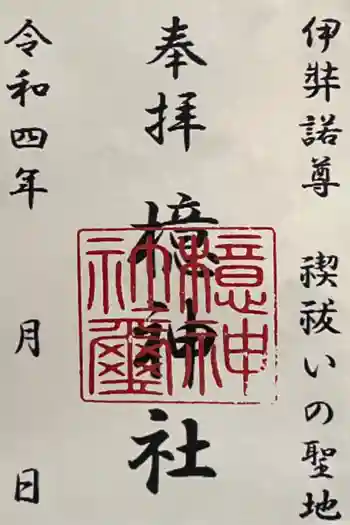 伊弉諾尊　禊祓いの聖地
奉拝
檍神社
檍神社璽
令和四年　月　日